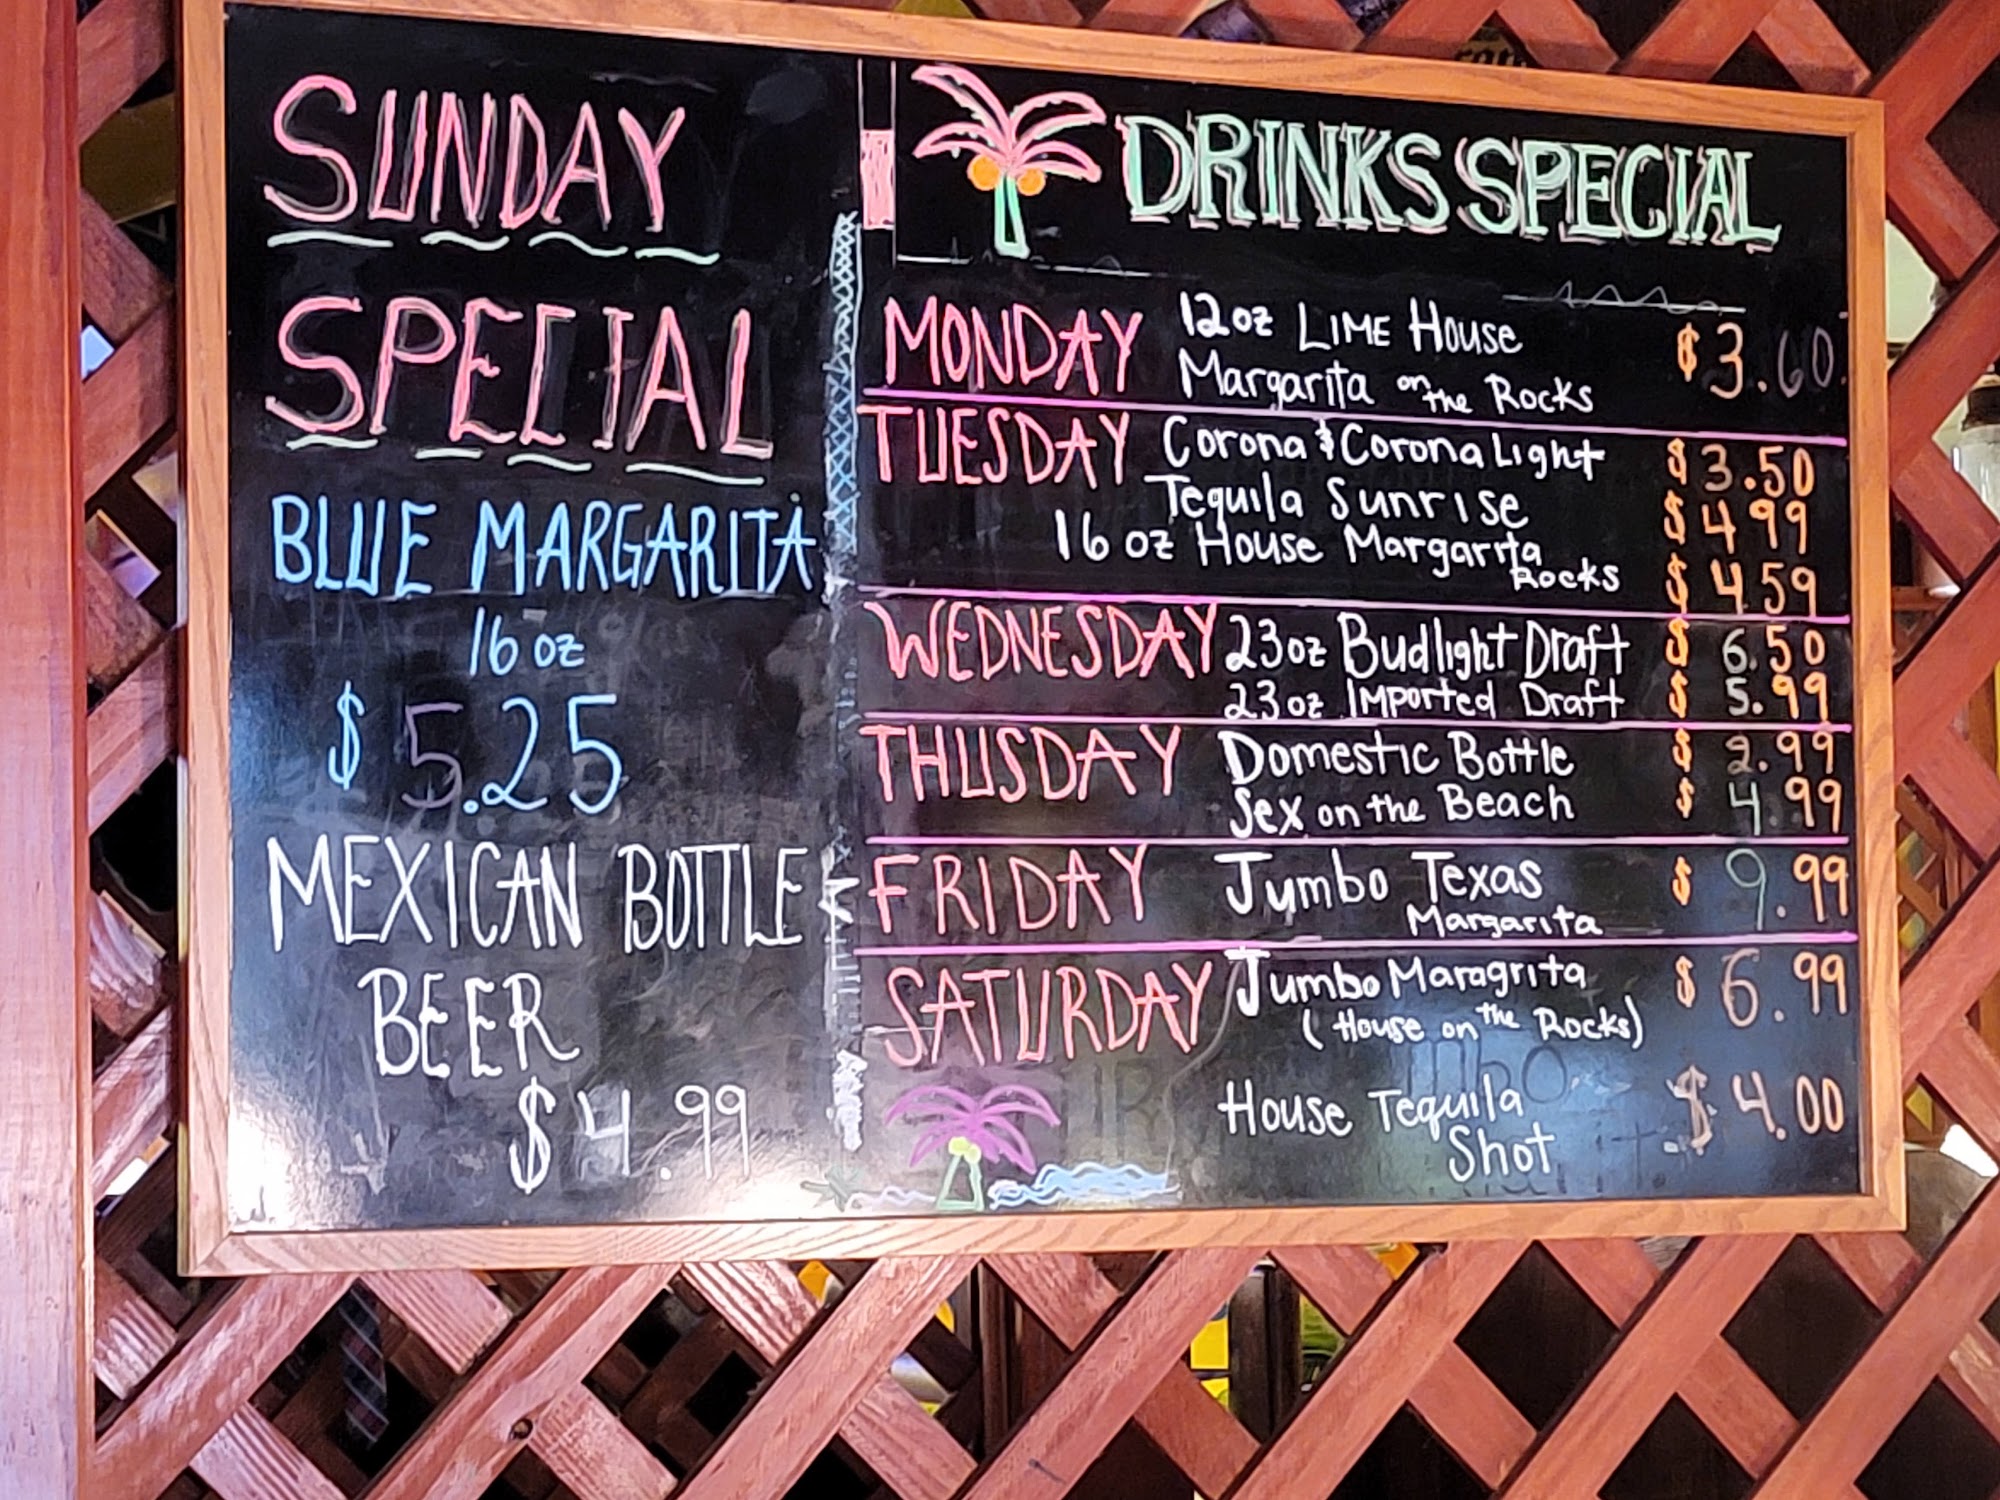 SUNDAY
SPECIAL
BLUE MARGARITA
16 oz
$5.25
MEXICAN BOTTLE
BEER
$4.99
DRINKS SPECIAL
MONDAY 12oz LIME House $3.60
Margarita on the Rocks
TUESDAY Corona & Corona Light $3.50
Tequila Sunrise $4.99
16 oz House Margarita
Rocks $4.59
WEDNESDAY 23oz Budlight Draft $6.50
23oz Imported Draft $5.99
THUSDAY Domestic Bottle $2.99
Sex on the Beach $4.99
FRIDAY Jumbo Texas $9.99
Margarita
SATURDAY Jumbo Maragrita $6.99
(House on the Rocks)
House Tequila $4.00
Shot